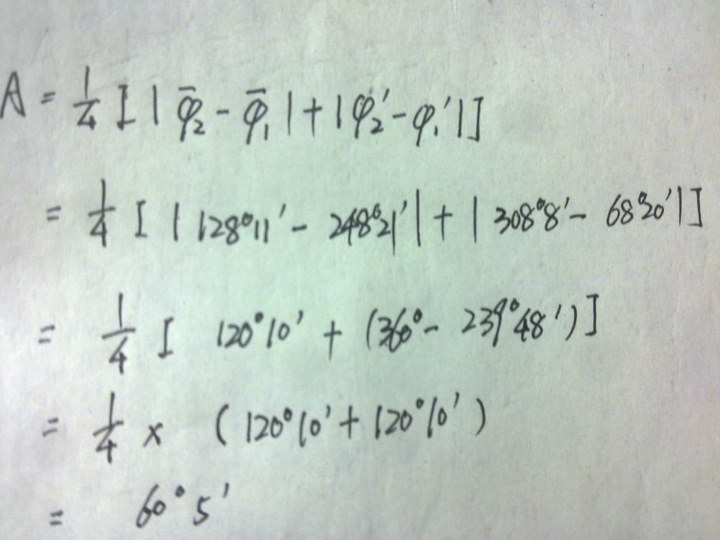 A = 1/4 [ | φ̄₂ - φ̄₁ | + | φ₂' - φ₁' | ]
= 1/4 [ | 128°11' - 248°21' | + | 308°8' - 68°20' | ]
= 1/4 [ 120°10' + (360° - 239°48') ]
= 1/4 × ( 120°10' + 120°10' )
= 60°5'